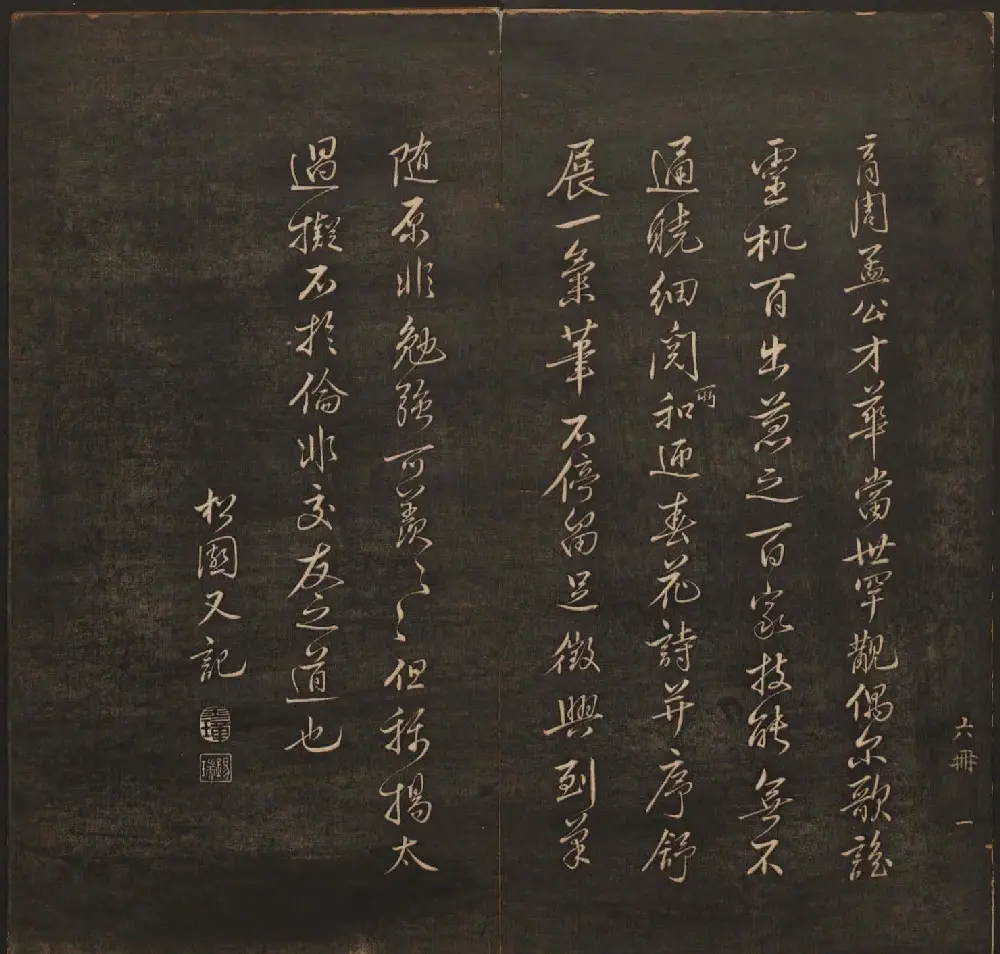 六冊 一
育周孟公才華當世罕覯偶尔歌謠
靈机百出蔥之百家技能無不
通曉細閱和所迎春花詩并序舒
展一氣筆不停留足徵興到筆
随原非勉強可羨〻〻但稱揚太
過擬不於倫非交友之道也
松園又記